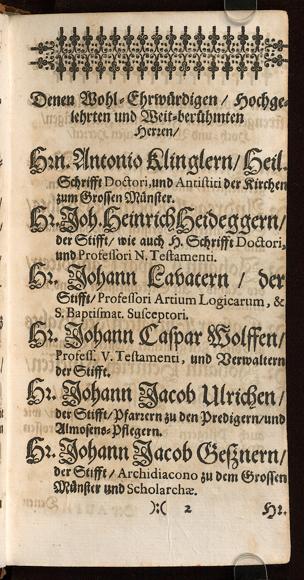 Denen Wohl-Ehrwürdigen / Hochge-
lehrten und Weit-berühmten
Herren /
Hrn. Antonio Klinglern / Heil.
Schrifft Doctori, und Antistiti der Kirchen
zum Grossen Münster.
Hr. Joh. Heinrich Heideggern /
der Stifft / wie auch H. Schrifft Doctori,
und Professori N. Testamenti.
Hr. Johann Lavatern / der
Stifft / Professori Artium Logicarum, &
S. Baptismat. Susceptori.
Hr. Johann Caspar Wolffen /
Profess. V. Testamenti, und Verwaltern
der Stifft.
Hr. Johann Jacob Ulrichen /
der Stifft / Pfarrern zu den Predigern / und
Almosens-Pflegern.
Hr. Johann Jacob Geßnern /
der Stifft / Archidiacono zu dem Grossen
Münster und Scholarchæ.
):( 2 Hr.